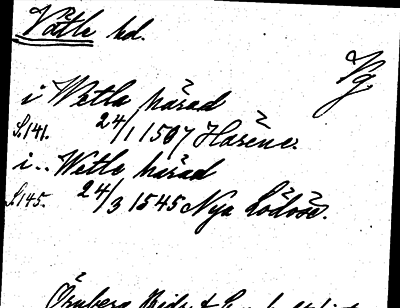 Vätle hd.
Vg
i Wetla härad
S.141. 24/1 1507 Harène.
i.. Wetle härad
S.145. 24/3 1545 Nya Lödöse.
Örnberg Bidr. t